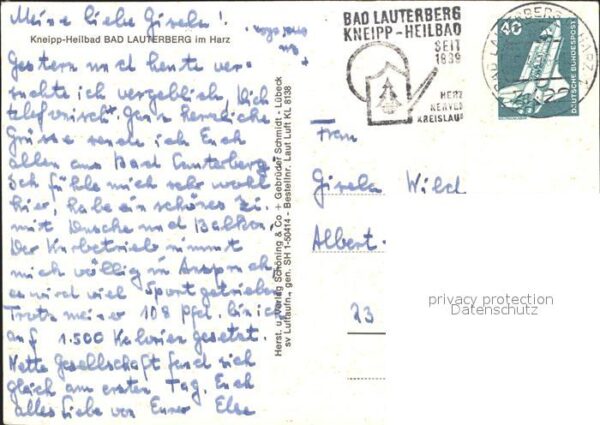 Meine liebe Gisela!
Kneipp-Heilbad BAD LAUTERBERG im Harz
Gestern und heute ver-
suchte ich vergeblich, Dich
telefonisch. Ganz herzliche
Grüsse sende ich Euch
allen aus Bad Lauterberg.
Ich fühle mich sehr wohl
hier, habe ein schönes Zi.
mit Dusche und Balkon.
Der Kurbetrieb nimmt
mich völlig in Anspruch,
es wird viel Sport getrieben
Trotz meiner 108 Pfd. bin ich
auf 1.500 Kalorien gesetzt.
Nette Gesellschaft fand sich
gleich am ersten Tag. Euch
alles Liebe von Eurer Else
Herst. u. Verlag Schöning & Co + Gebrüder Schmidt - Lübeck
sv Luftaufn. gen. SH 1-50414 - Bestellnr. Laut Luft KL 8138
BAD LAUTERBERG
KNEIPP-HEILBAD
SEIT
1839
HERZ
NERVEN
KREISLAUF
BAD LAUTERBERG
40
DEUTSCHE BUNDESPOST
Frau
Gisela Wild
Albert-
23
privacy protection
Datenschutz